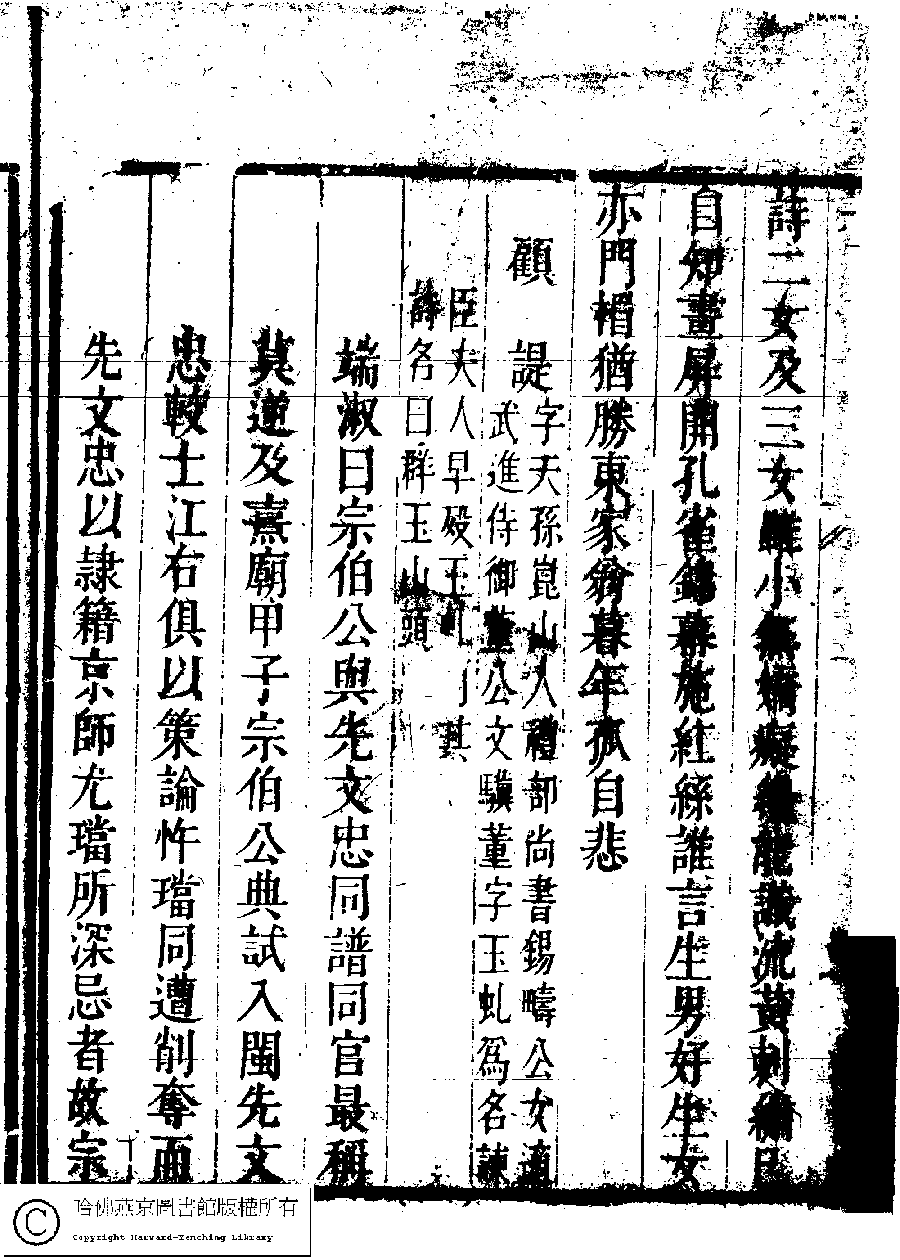 詩二女及三女雖小無嬌癡纔能識流黃刺繡
自知畫屏開孔雀錦幕施紅絲誰言生男好生女
亦門楣猶勝東家翁暮年孤自悲
顧諟
字天孫崑山人禮部尚書錫疇公女適
武進侍御董公文驥董字玉虬爲名諫
臣夫人早歿玉虬刊其
詩名曰群玉山頭
端淑曰宗伯公與先文忠同譜同官最稱
莫逆及熹廟甲子宗伯公典試入閩先文
忠較士江右俱以策論忤璫同遭削奪而
先文忠以隷籍京師尤璫所深忌者故宗
哈佛燕京圖書館版權所有
Copyright Harvard-Yenching Library